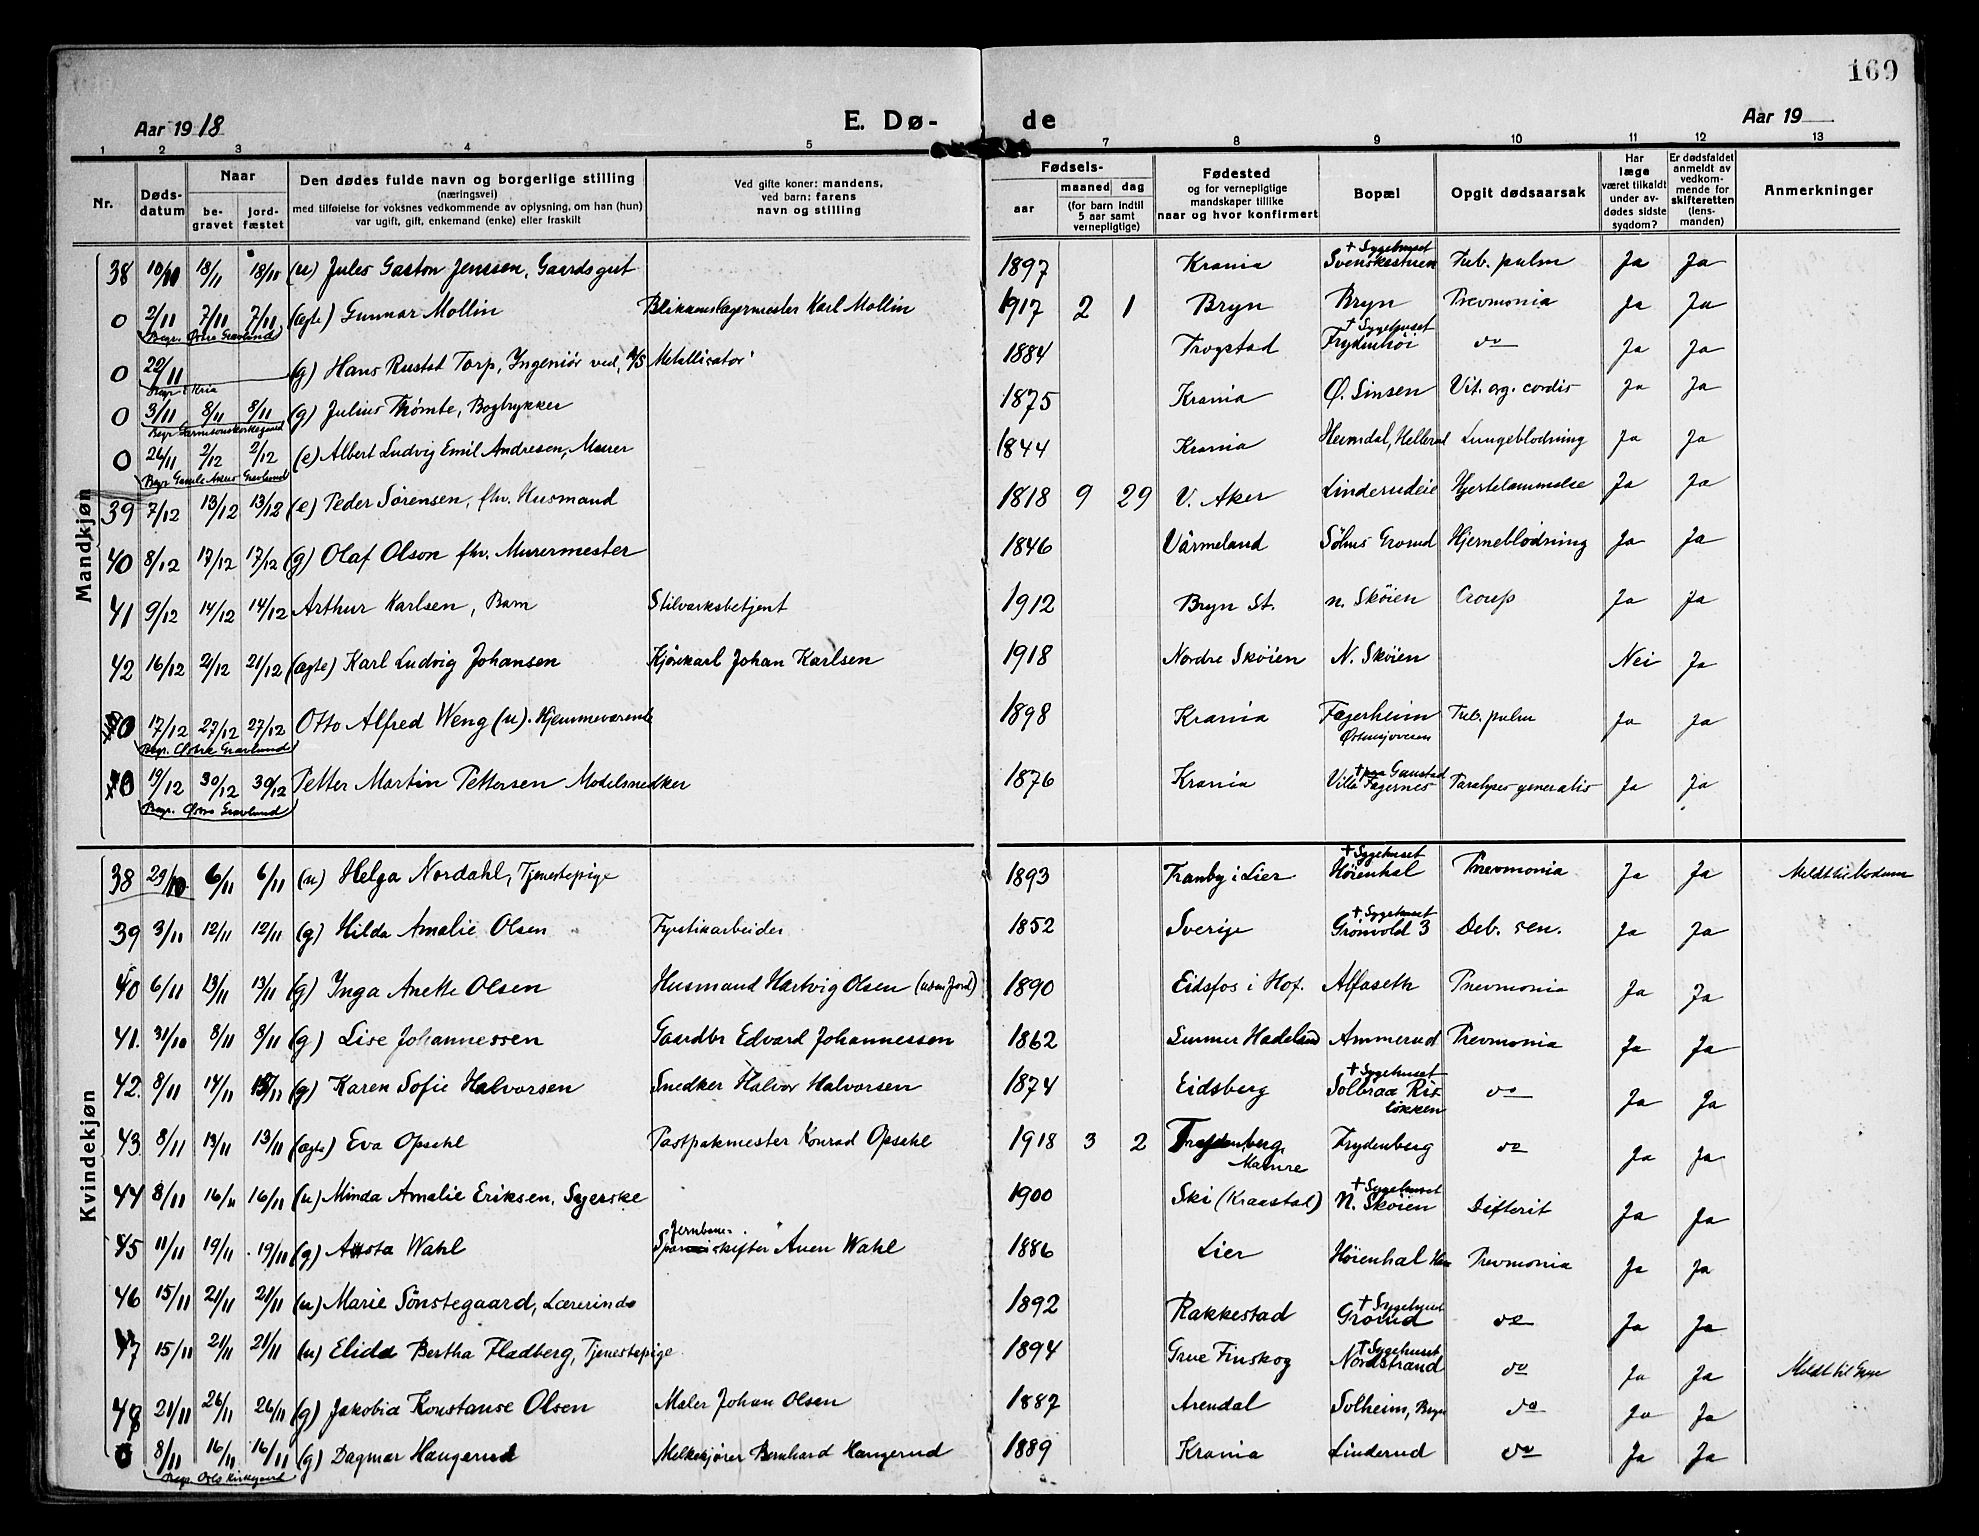 169
Aar 1918
E. Dø-
de
Aar 19
1 2 3 4 5 7 8 9 10 11 12 13
Nr.
Dødsdatum
Naar
begravet
jordfæstet
Den dødes fulde navn og borgerlige stilling
(næringsvei)
med tilføielse for voksnes vedkommende av oplysning, om han (hun)
var ugift, gift, enkemand (enke) eller fraskilt
Ved gifte koner: mandens,
ved barn: farens
navn og stilling
Fødsels-
aar
maaned
dag
(for barn indtil
5 aar samt
vernepligtige)
Fødested
og for vernepligtige
mandskaper tillike
naar og hvor konfirmert
Bopæl
Opgit dødsaarsak
Har
læge
været tilkaldt
under av-
dødes sidste
sygdom?
Er dødsfaldet
anmeldt av
vedkom-
mende for
skifteretten
(lens-
manden)
Anmerkninger
Mandkjøn
38 10/10 18/11 18/11 (u) Jules Gaston Jenssen, Gaardsgut 1897 Krania + Sygehuset Svenskestuen Tub. pulm Ja Ja
0 2/11 7/11 7/11 (ægte) Gunnar Mollin Blikkenslagermester Karl Mollin 1917 2 1 Bryn Bryn Pnevmonia Ja Ja
Begr. Østre Gravlund
0 22/11 (g) Hans Rustad Torp, Ingeniør ved A/S Metallisator 1884 Trogstad + Sygehuset Frydenhøi do Ja Ja
Begr. i Kria
0 3/11 8/11 8/11 (g) Julius Thømte, Bogtrykker 1875 Krania Ø. Sinsen Vit. org. cordis Ja Ja
Begr. Garnisonskirkegaard
0 26/11 2/12 2/12 (e) Albert Ludvig Emil Andresen, Murer 1844 Krania Heimdal, Hellerud Lungeblødning Ja Ja
Begr Gamle Akers Gravlund
39 7/12 13/12 13/12 (e) Peder Sørensen, fhv. Husmand 1818 9 29 V. Aker Linderudeie Hjertelammelse Ja Ja
40 8/12 17/12 17/12 (g) Olaf Olson fhv. Murermester 1846 Värmeland Sølhus Grorud Hjerneblødning Ja Ja
41 9/12 14/12 14/12 Arthur Karlsen, Barn Stilverksbetjent 1912 Bryn St. N. Skøien Croup Ja Ja
42 16/12 21/12 21/12 (ægte) Karl Ludvig Johansen Kjørekarl Johan Karlsen 1918 Nordre Skøien N. Skøien Nei Ja
0 17/12 27/12 27/12 Otto Alfred Weng (u). Hjemmeværende 1898 Krania Fagerheim Østensjøveien Tub. pulm Ja Ja
Begr. Østre Gravlund
0 19/12 30/12 30/12 Petter Martin Pettersen Modelsnedker 1876 Krania + paa Gaustad Villa Fagernes Paralyses generalis Ja Ja
Begr. Østre Gravlund
Kvindekjøn
38 29/10 6/11 6/11 (u) Helga Nordahl, Tjenestepige 1893 Tranby i Lier + Sygehuset Høienhal Pnevmonia Ja Ja Meldt til Modum
39 3/11 12/11 12/11 (g) Hilda Amalie Olsen Fyrstikarbeider 1852 Sverige + Sygehuset Grønvold 3 Deb. sen. Ja Ja
40 6/11 13/11 13/11 (g) Inga Anette Olsen Husmand Hartvig Olsen (uden jord) 1890 Eidsfos i Hof. Alfaseth Pnevmonia Ja Ja
41. 31/10 8/11 8/11 (g) Lise Johannessen Gaardbr Edvard Johannessen 1862 Lunner Hadeland Ammerud Pnevmonia Ja Ja
42. 8/11 14/11 15/11 (g) Karen Sofie Halvorsen Snedker Halvor Halvorsen 1874 Eidsberg + Sygehuset Solbraa Risløkken do Ja Ja
43 8/11 13/11 13/11 (ægte) Eva Opsahl Postpakmester Konrad Opsahl 1918 3 2 Frydenberg Frydenberg do Ja Ja
44 8/11 16/11 16/11 (u) Minda Amalie Eriksen, Syerske 1900 Ski (Kraastad) + Sygehuset N. Skøien Difterit Ja Ja
45 11/11 19/11 19/11 (g) Asta Wahl Jernbane- Sporskifter Auen Wahl 1886 Lier Høienhal Pnevmonia Ja Ja
46 15/11 21/11 21/11 (u) Marie Sønstegaard, Lærerinde 1892 Rakkestad + Sygehuset Grorud do Ja Ja
47 15/11 21/11 21/11 (u) Elida Bertha Fladberg, Tjenestepige 1894 Grue Finskog + Sygehuset Nordstrand do Ja Ja Meldt til Grue
48 21/11 26/11 26/11 (g) Jakobia Konstanse Olsen Maler Johan Olsen 1887 Arendal Solheim, Bryn do Ja Ja
0 8/11 16/11 16/11 (g) Dagmar Haugerud Melkekjører Bernhard Haugerud 1889 Krania Linderud do Ja Ja
Begr. Oslo Kirkegaard